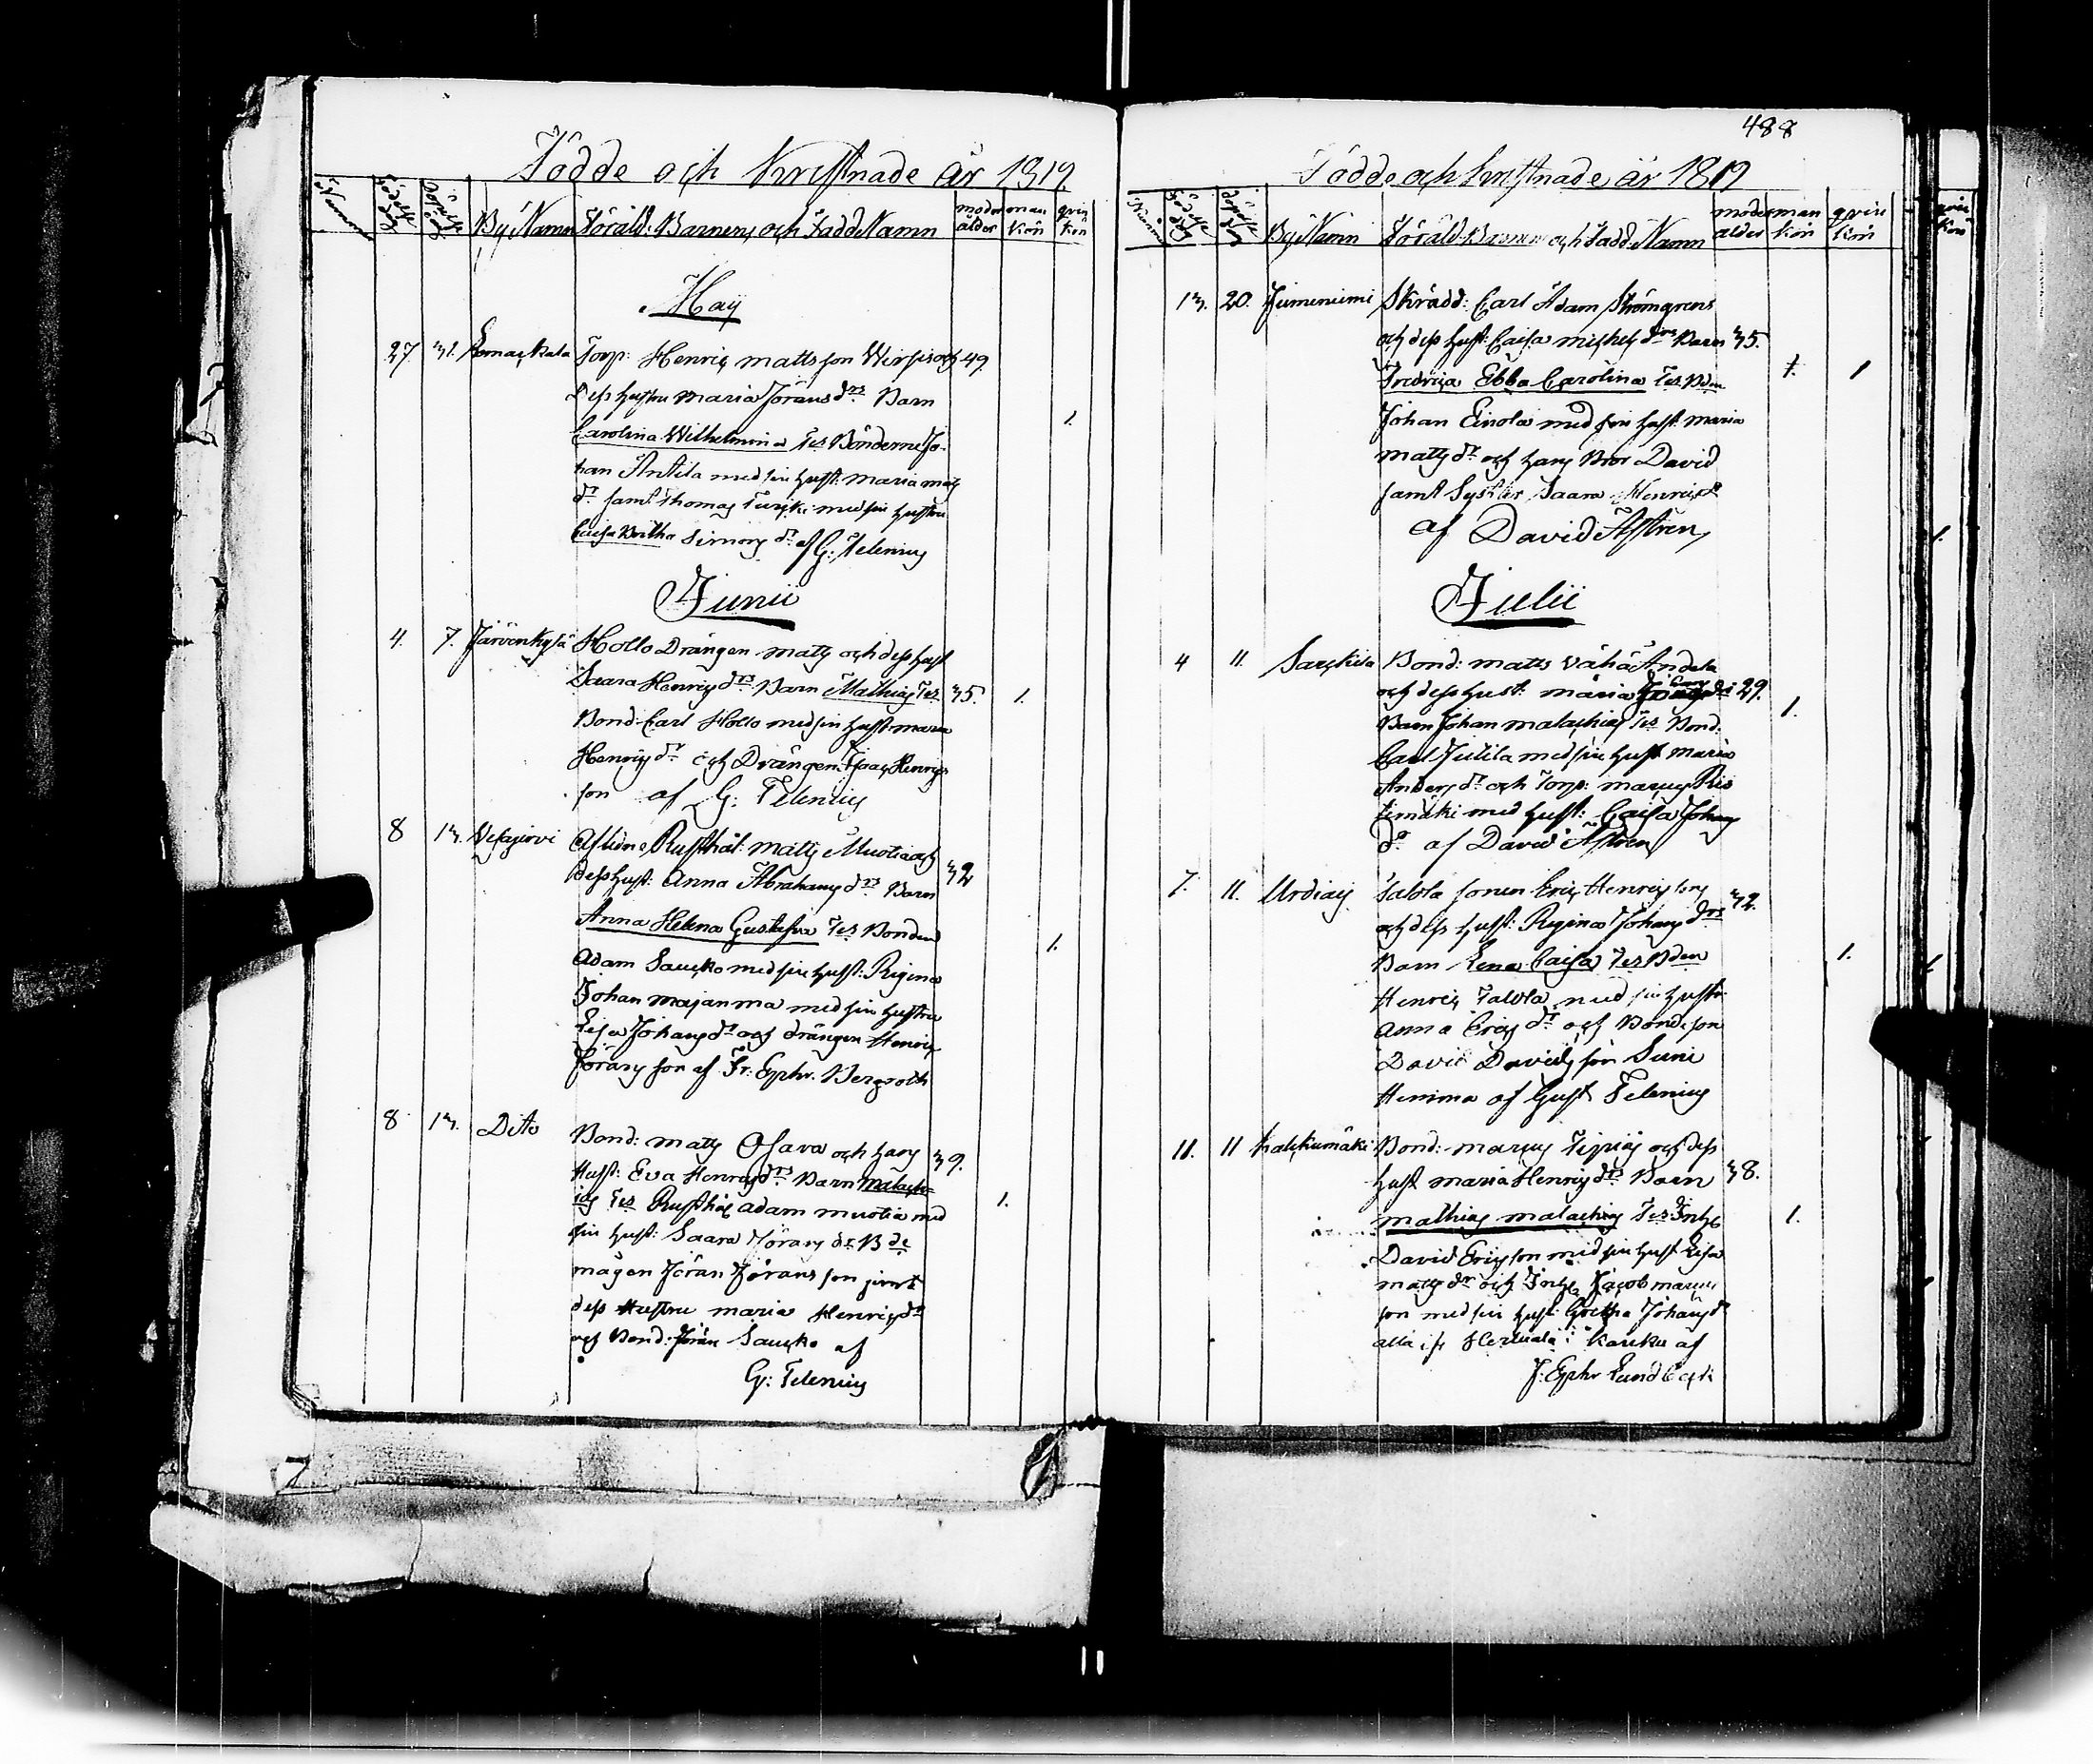 Födde och Kristnade år 1819.
Numer
Födelse dag
Döpelse dag
By Namn
Föräld: Barnens och Fadd Namn
moder ålder
man kön
qvin kön
Maij
27. 31. Torp: Henric mattsson och 49.
Dess hustru Maria Jörans drs Barn
Carolina Wilhelmina Tes Bönderne Jo- 1.
han Antila med sin hust: maria mats
dr samt Thomas med sin hustru
Caisa Britha Simons dr af G: Telenius
Junii
4. 7. Järvenkylä Hollo Drängen matts och dess hust
Saara Henrics drs Barn Mathias Tes 35. 1.
Bond Carl Hollo med sin hust maria
Henrics dr och Drängen Isaac Henrics
son af G: Telenius
8 13. Vesajärvi Rusthål: matts Muotia och
dess hust: Anna Abrahams drs Barn 32
Anna Helena Gustafva Tes Bonden
Adam Saucko med sin hust: Regina 1.
Johan majanma med sin hustru
Lisa Johans dr och drängen Henric
Jörans son af Fr: Ephr. Bergroth
8 13. Dito Bond: matts Ojava och hans 39.
Hust: Eva Henrics drs Barn Malach-
ias Tes Rusthål adam muotia med 1.
sin hust: Saara Jörans dr B de
mågen Jöran Jörans son jemt
dess Hustru maria Henrics dr
och Bond: Jöran Saucko af
G: Telenius
488
Födde och Kristnade år 1819
Numer
Födelse dag
Döpelse dag
By Namn
Föräld Barnens och Fadd: Namn
moder ålder
man kön
qvin kön
13. 20. Skrädd: Carl Adam Strömgrens
och dess hust: Caisa michels drs Barn 35.
Fredrica Ebba Carolina Tes Bden 1. 1
Johan Einola med sin hust maria
matts dr och hans Bror David
samt Syster Saara Henrics dr
af David Aströn
Julii
4 11. Sarckila Bond: matts vähä Andela
och dess hust: maria drs 29.
Barn Johan malachias Tes Bond. 1.
Carl Jutila med sin hust maria
Anders dr och Torp: marcus Ris
timäki med hust: Caisa Johans
dr af David Aströn
7. 11. Urdiais Talola sonen Eric Henrics son 32.
och dess hust: Regina Johans drs
Barn Lena Caisa Tes Bden 1.
Henric Talola med sin hustru
anna Erics dr och Bonde son
David Davids son Suni
Hemma af Gust Telenius
11. 11 Kalckumäki Bond: marcus och dess
hust maria Henrics drs Barn 38.
mathias malachias Tes Inhs 1.
David Ericsson med sin hust Lisa
matts dr och Inhs Jacob marcus
son med sin hust: Gretha Johans dr
alla i fr i Karcku af
J: Ephr Lundbäck